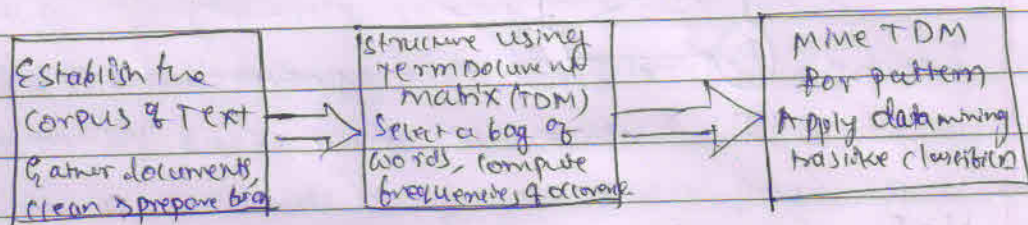 Establish the
corpus of Text
Gather documents,
clean & prepare
structure using
Term Document
matrix (TDM)
Select a bag of
words, compute
frequencies of
Mine TDM
for pattern
Apply data mining